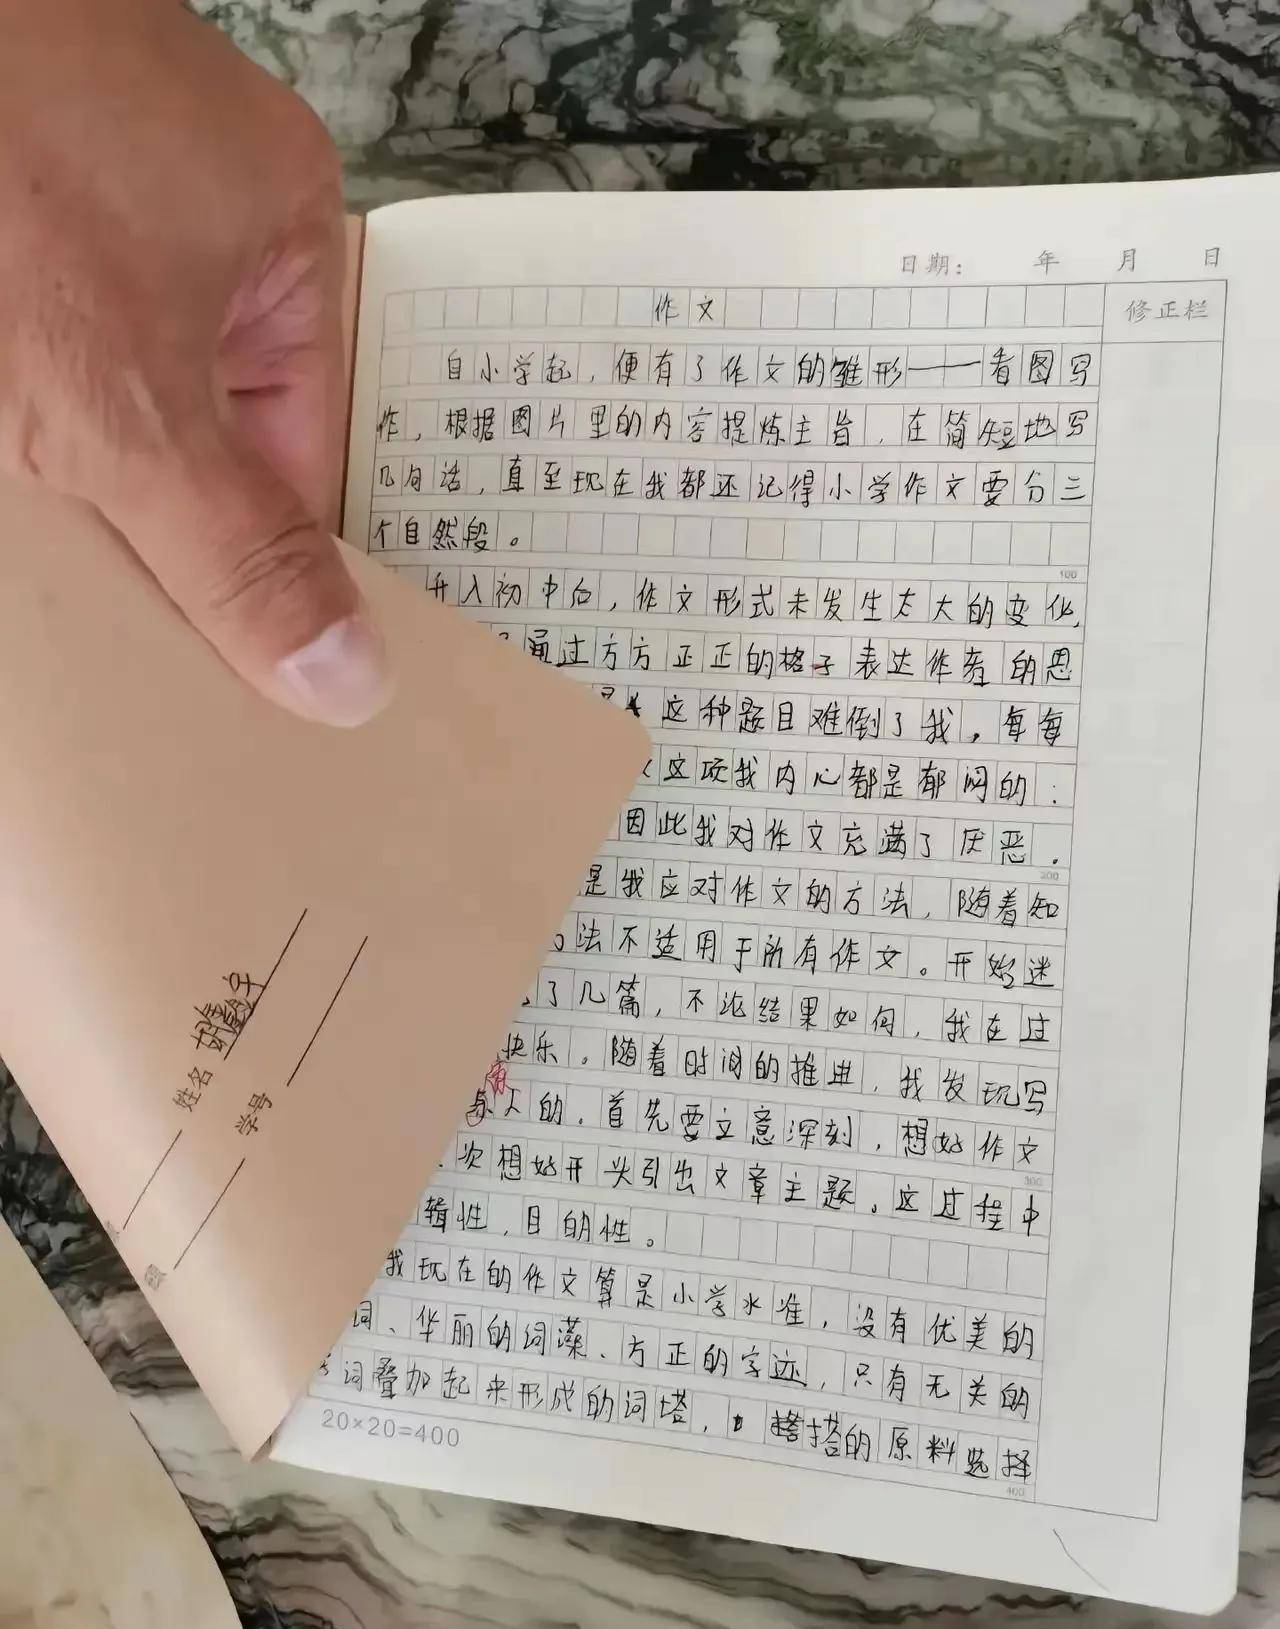 日期： 年 月 日
作文
修正栏
自小学起，便有了作文的雏形——看图写
作，根据图片里的内容提炼主旨，在简短地写
几句话，直至现在我都还记得小学作文要分三
个自然段。
100
升入初中后，作文形式未发生太大的变化，
通过方方正正的格子表达作者的思
这种题目难倒了我，每每
这项我内心都是郁闷的：
因此我对作文充满了厌恶。
200
是我应对作文的方法，随着知
法不适用于所有作文。开始迷
了几篇，不论结果如何，我在过
快乐。随着时间的推进，我发现写
的，首先要立意深刻，想好作文
300
次想好开头引出文章主题。这过程中
辑性，目的性。
我现在的作文算是小学水准，没有优美的
词、华丽的词藻、方正的字迹，只有无关的
词叠加起来形成的词塔，搭的原料选择
400
20×20=400
姓名
学号